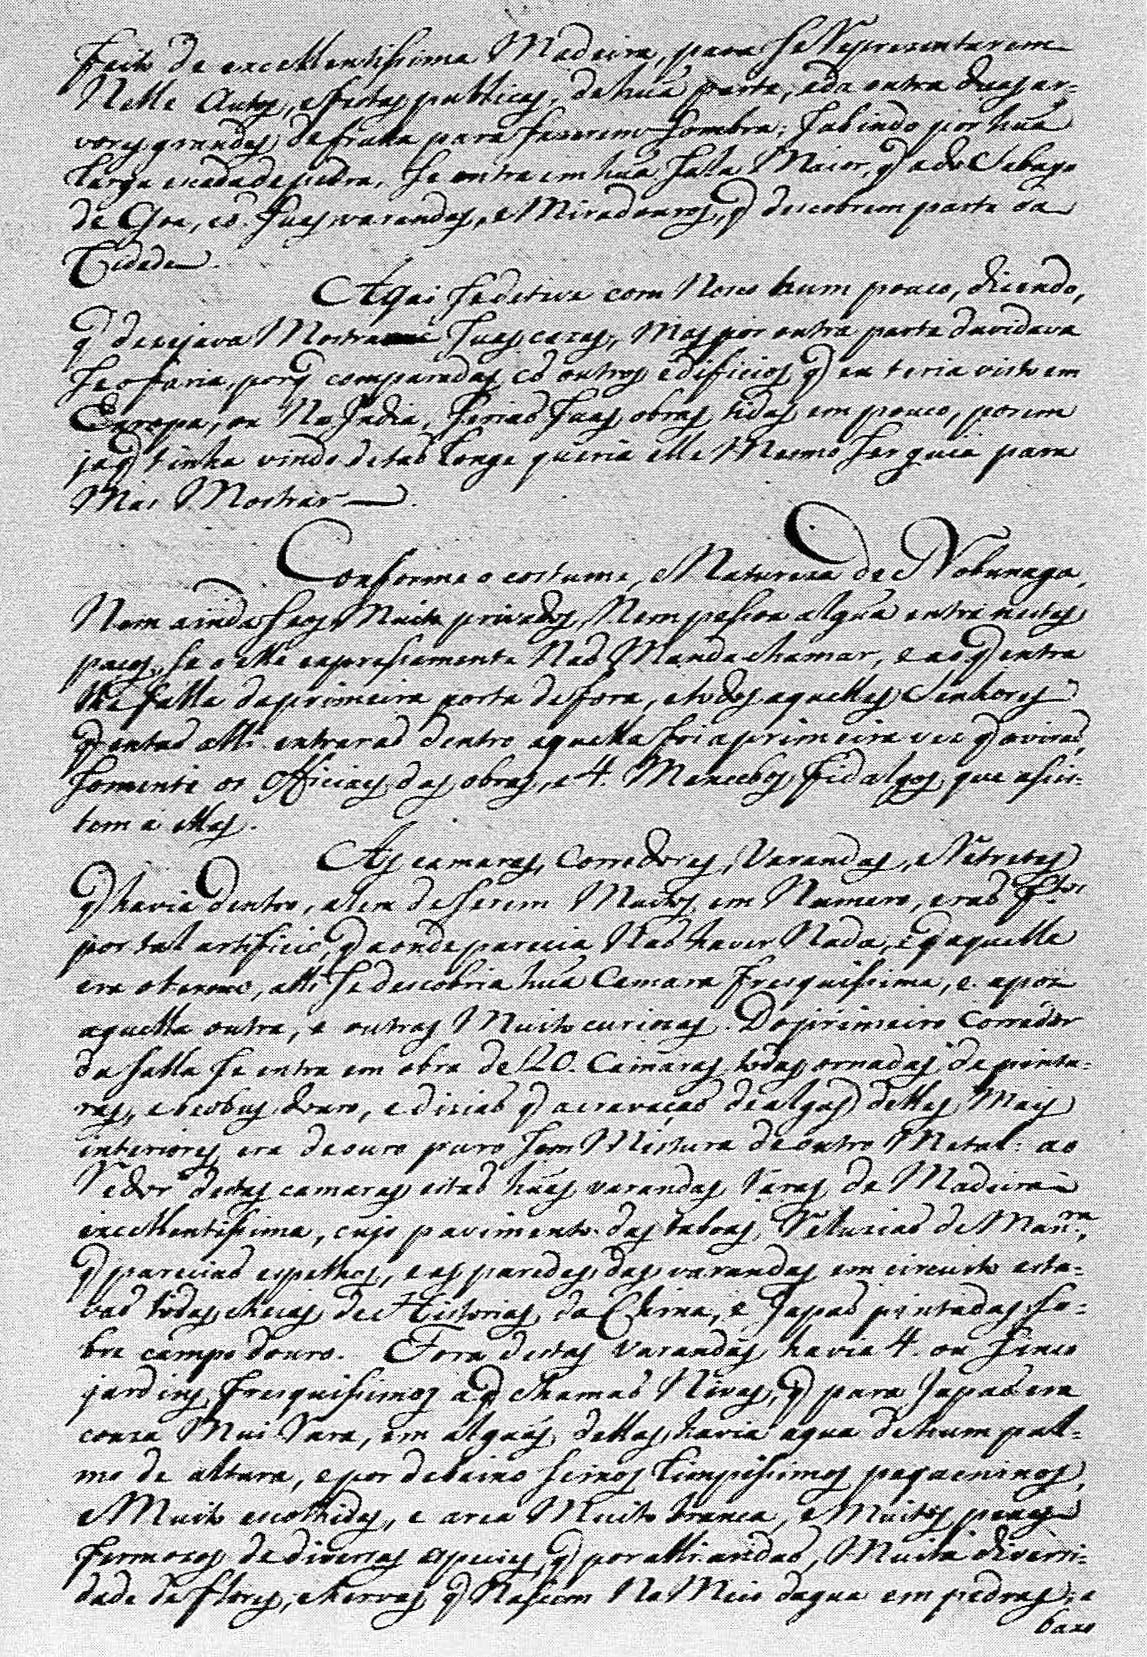 feito de excellentissima Madeira, para se Representarem
Nelle Autos, e festas publicas, de huã parte, e da outra duas ar-
vores grandes de fruita para fazerem sombra; Subindo por huã
larga escada de pedra, se entra em huã sala Maior, q̃ a do Sabayo
de Goa, cõ suas varandas, e Miradouros, q̃ descobrem parte da
Cidade.
Aqui se deteve com Nosco hum pouco, dicendo,
q̃ desejava Mostrar suas cazas, Mas por outra parte duvidava
se o faria, porq̃ comparadas cõ outros edificios q̃ eu teria visto em
Europa, ou Na India, seriaõ suas obras tidas em pouco, porem
ja q̃ tinha vindo de taõ longe queria elle Mesmo ser guia para
Mas Mostrar —.
Conforme o costume, e Natureza de Nobunaga,
Nem ainda seos Muito privados, Nem pessoa algũa entra nestes
paços, se o elle expressamente Naõ Manda chamar, e ao q̃ entra
lhe falla da primeira porta de fora, e todos aquelles Senhores
q̃ entaõ alli entraraõ dentro aquella foi a primeira vez q̃ o viraõ,
somente os officiaes das obras, e 4. Mancebos fidalgos, que assis-
tem a ellas.
As camaras, Corredores, Varandas, e Retretes
q̃ havia dentro, alem de serem Muitos em Numero, eraõ f.tos
por tal artificio, q̃ aonde parecia Naõ haver Nada, e q̃ aquelle
era o termo, alli se descobria huã Camara fresquissima, e apoz
aquella outra, e outras Muito curiosas. Do primeiro Corredor
da salla se entra em obra de 20. Camaras todas ornadas de pintu-
ras, e beobus douro, e diziaõ q̃ a cravaçaõ de algũas dellas Mais
interiores era de ouro puro sem Mistura de outro Metal: ao
Redor destas camaras estaõ huãs varandas Raras de Madeira
excellentissima, cujo pavimento das taboas Reluziaõ de Man.ra,
q̃ pareciaõ espelhos, e as paredes das varandas em circuito esta-
vaõ todas cheias de Historias da China, e Japaõ pintadas so-
bre campo douro. Fora destas Varandas havia 4. ou sinco
jardins fresquissimos a q̃ chamaõ Nivas, q̃ para Japaõ era
couza Mui Rara, em alguãs dellas havia agua de hum pal-
mo de altura, e por debaixo seixos limpissimos pequeninos,
e Muito escolhidos, e area Muito branca, e Muitos peixes
fermozos de diversas especies, q̃ por alli andaõ, Muita diversi-
dade de flores, e hervas q̃ Nascem No Meio dagua em pedras; e
baxo